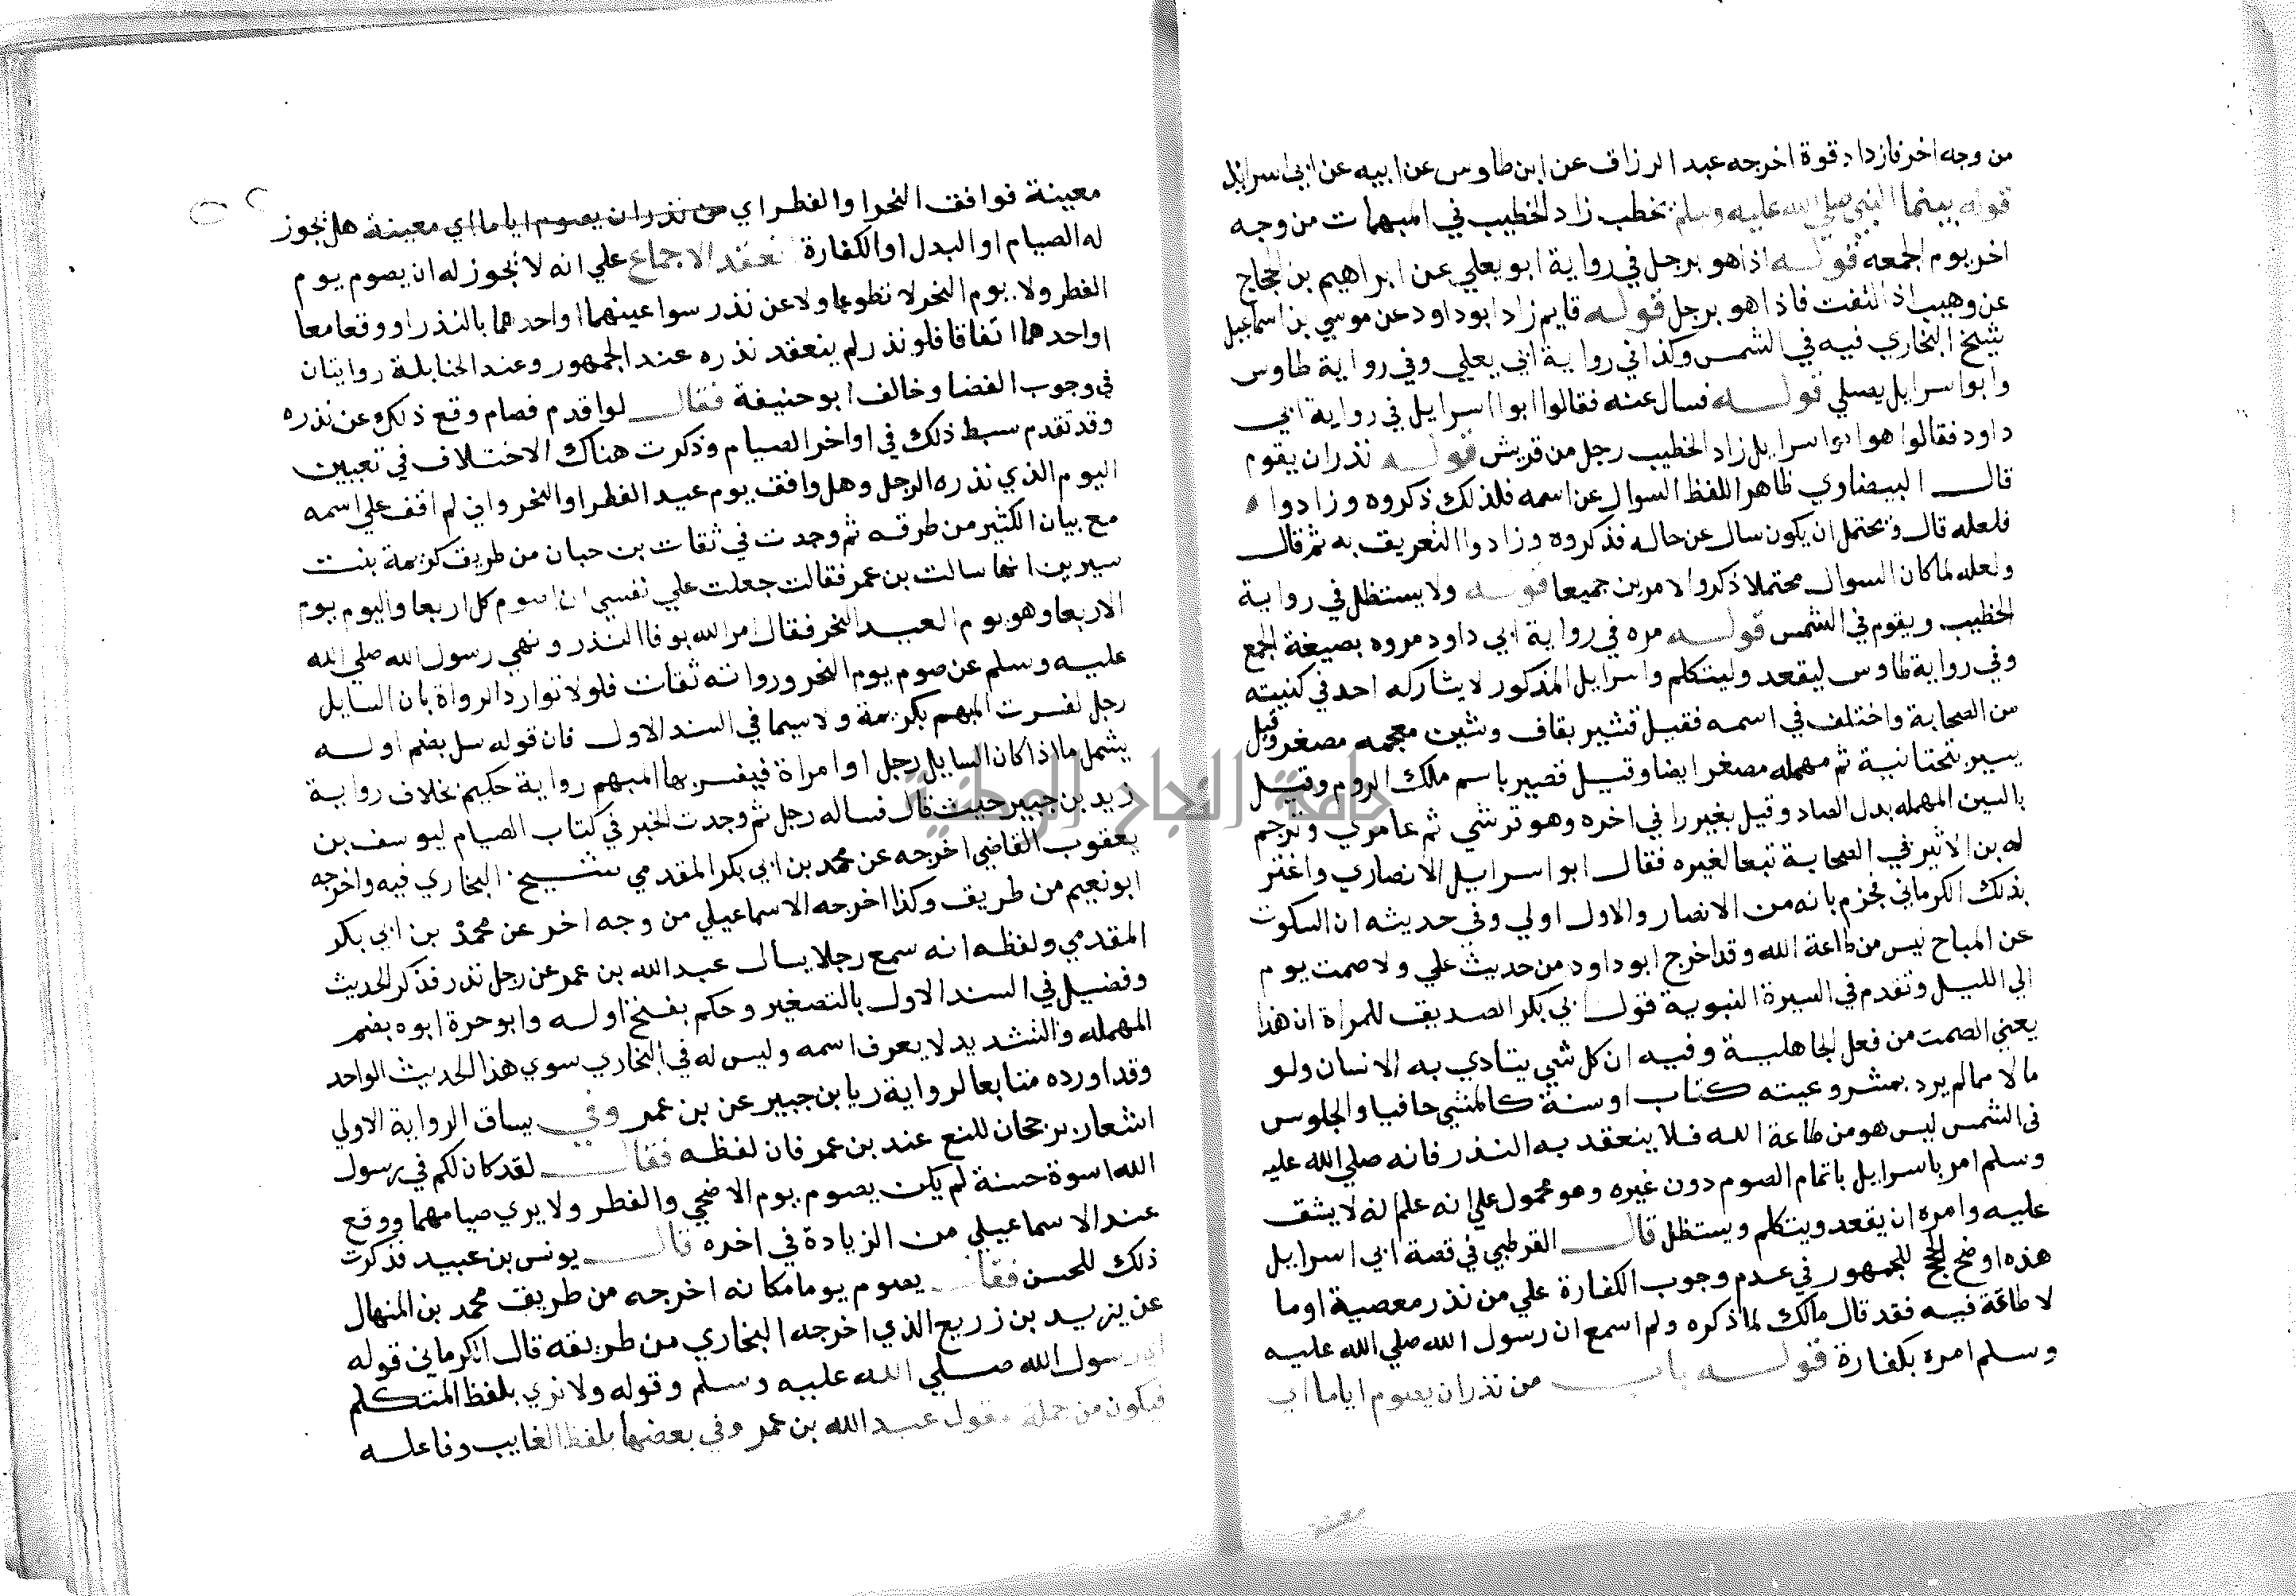 من وجه اخر فازداد قوة اخرجه عبد الرزاق عن ابن طاوس عن ابيه عن ابي اسرائيل
قوله بينما النبي صلي الله عليه وسلم يخطب زاد الخطيب في المبهمات من وجه
اخر يوم الجمعه قوله اذا هو برجل في رواية ابو يعلي عن ابراهيم بن الحجاج
عن وهيب اذ التفت فاذا هو برجل قوله قايم زاد ابو داود عن موسي بن اسماعيل
شيخ البخاري فيه في الشمس وكذا في رواية ابي يعلي وفي رواية طاوس
وابو اسرايل يصلي قوله فسال عنه فقالوا ابو اسرايل في رواية ابي
داود فقالوا هو ابو اسرايل زاد الخطيب رجل من قريش قوله نذر ان يقوم
قال البيضاوي ظاهر اللفظ السوال عن اسمه فلذلك ذكروه وزادوا
فلعله قال ويحتمل ان يكون سال عن حاله فذكروه وزادوا التعريف به ثم قال
ولعله لما كان السوال محتملا ذكروا الامرين جميعا قوله ولا يستظل في رواية
الخطيب ويقوم في الشمس قوله مره في رواية ابي داود مروه بصيغة الجمع
وفي رواية طاوس ليقعد وليتكلم وابو اسرايل المذكور لا يشاركه احد في كنيته
من الصحابة واختلف في اسمه فقيل قشير بقاف وشين معجمه مصغر وقيل
يسير بتحتانية ثم مهمله مصغر ايضا وقيل قصير باسم مالك الروم وقيل
بالسين المهمله بدل الصاد وقيل بغير را في اخره وهو قرشي ثم عامري وترجم
له بن الاثير في الصحابة تبعا لغيره فقال ابو اسرايل الانصاري واغتر
بذلك الكرماني فجزم بانه من الانصار والاول اولي وفي حديثه ان السكوت
عن المباح ليس من طاعة الله وقد اخرج ابو داود من حديث علي ولا صمت يوم
الي الليل وتقدم في السيرة النبوية قول ابي بكر الصديق للمراة ان هذا
يعني الصمت من فعل الجاهلية وفيه ان كل شي يتادي به الانسان ولو
مالا مما لم يرد بمشروعيته كتاب او سنة كالمشي حافيا والجلوس
في الشمس ليس هو من طاعة الله فلا ينعقد به النذر فانه صلي الله عليه
وسلم امر با اسرايل باتمام الصوم دون غيره وهو محمول علي انه علم انه لا يشق
عليه وامره ان يقعد ويتكلم ويستظل قال القرطبي في قصة ابي اسرايل
هذه اوضح الحجج للجمهور في عدم وجوب الكفارة علي من نذر معصية او ما
لا طاعة فيه فقد قال مالك لما ذكره ولم اسمع ان رسول الله صلي الله عليه
وسلم امره بكفارة قوله باب من نذر ان يصوم اياما اي
معينة
معينة فوافق النحر او الفطر اي من نذر ان يصوم اياما اي معينة هل يجوز
له الصيام او البدل او الكفارة انعقد الاجماع علي انه لا يجوز له ان يصوم يوم
الفطر ولا يوم النحر لا تطوعا ولا عن نذر سوا عينهما او احدهما بالنذر او وقعا معا
او احدهما اتفاقا فلو نذر لم ينعقد نذره عند الجمهور وعند الحنابلة روايتان
في وجوب القضا وخالف ابو حنيفة فقال لو اقدم فصام وقع ذلك عن نذره
وقد تقدم بسط ذلك في اواخر الصيام وذكرت هناك الاختلاف في تعيين
اليوم الذي نذره الرجل وهل وافق يوم عيد الفطر او النحر واني لم اقف علي اسمه
مع بيان الكثير من طرقه ثم وجدت في ثقات بن حبان من طريق كريمة بنت
سيرين انها سالت بن عمر فقالت جعلت علي نفسي ان اصوم كل اربعا واليوم يوم
الاربعا وهو يوم العيد النحر فقال امر الله بوفا النذر ونهي رسول الله صلي الله
عليه وسلم عن صوم يوم النحر ورواته ثقات فلولا توارد الرواة بان السايل
رجل لفسرت المبهم بكريمة ولا سيما في السند الاول فان قوله سل بضم اوله
يشمل ما اذا كان السايل رجل او امراة فيفسر بها المبهم رواية حكيم بخلاف رواية
زيد بن جبير حيث قال فساله رجل ثم وجدت الخبر في كتاب الصيام ليوسف بن
يعقوب القاضي اخرجه عن محمد بن ابي بكر المقدمي شيخ البخاري فيه واخرجه
ابو نعيم من طريق وكذا اخرجه الاسماعيلي من وجه اخر عن محمد بن ابي بكر
المقدمي ولفظه انه سمع رجلا يسال عبد الله بن عمر عن رجل نذر فذكر الحديث
وفضيل في السند الاول بالتصغير وحكم بفتح اوله وابو حرة ابوه بضم
المهمله والتشديد لا يعرف اسمه وليس له في البخاري سوي هذا الحديث الواحد
وقد اورده متابعا لرواية زيا بن جبير عن بن عمر وفي سياق الرواية الاولي
اشعار برجحان للنع عند بن عمر فان لفظه فقال لقد كان لكم في رسول
الله اسوة حسنة لم يكن يصوم يوم الاضحي والفطر ولا يري صيامهما ووقع
عند الاسماعيلي من الزيادة في اخره قال يونس بن عبيد فذكرت
ذلك للحسن فقال يصوم يوما مكانه اخرجه من طريق محمد بن المنهال
عن يزيد بن زريع الذي اخرجه البخاري من طريقه قال الكرماني قوله
اي رسول الله صلي الله عليه وسلم وقوله ولا نري بلفظ المتكلم
فيكون من جملة مقول عبد الله بن عمر وفي بعضها بلفظ الغايب وفاعله
جامعة النجاح الوطنية